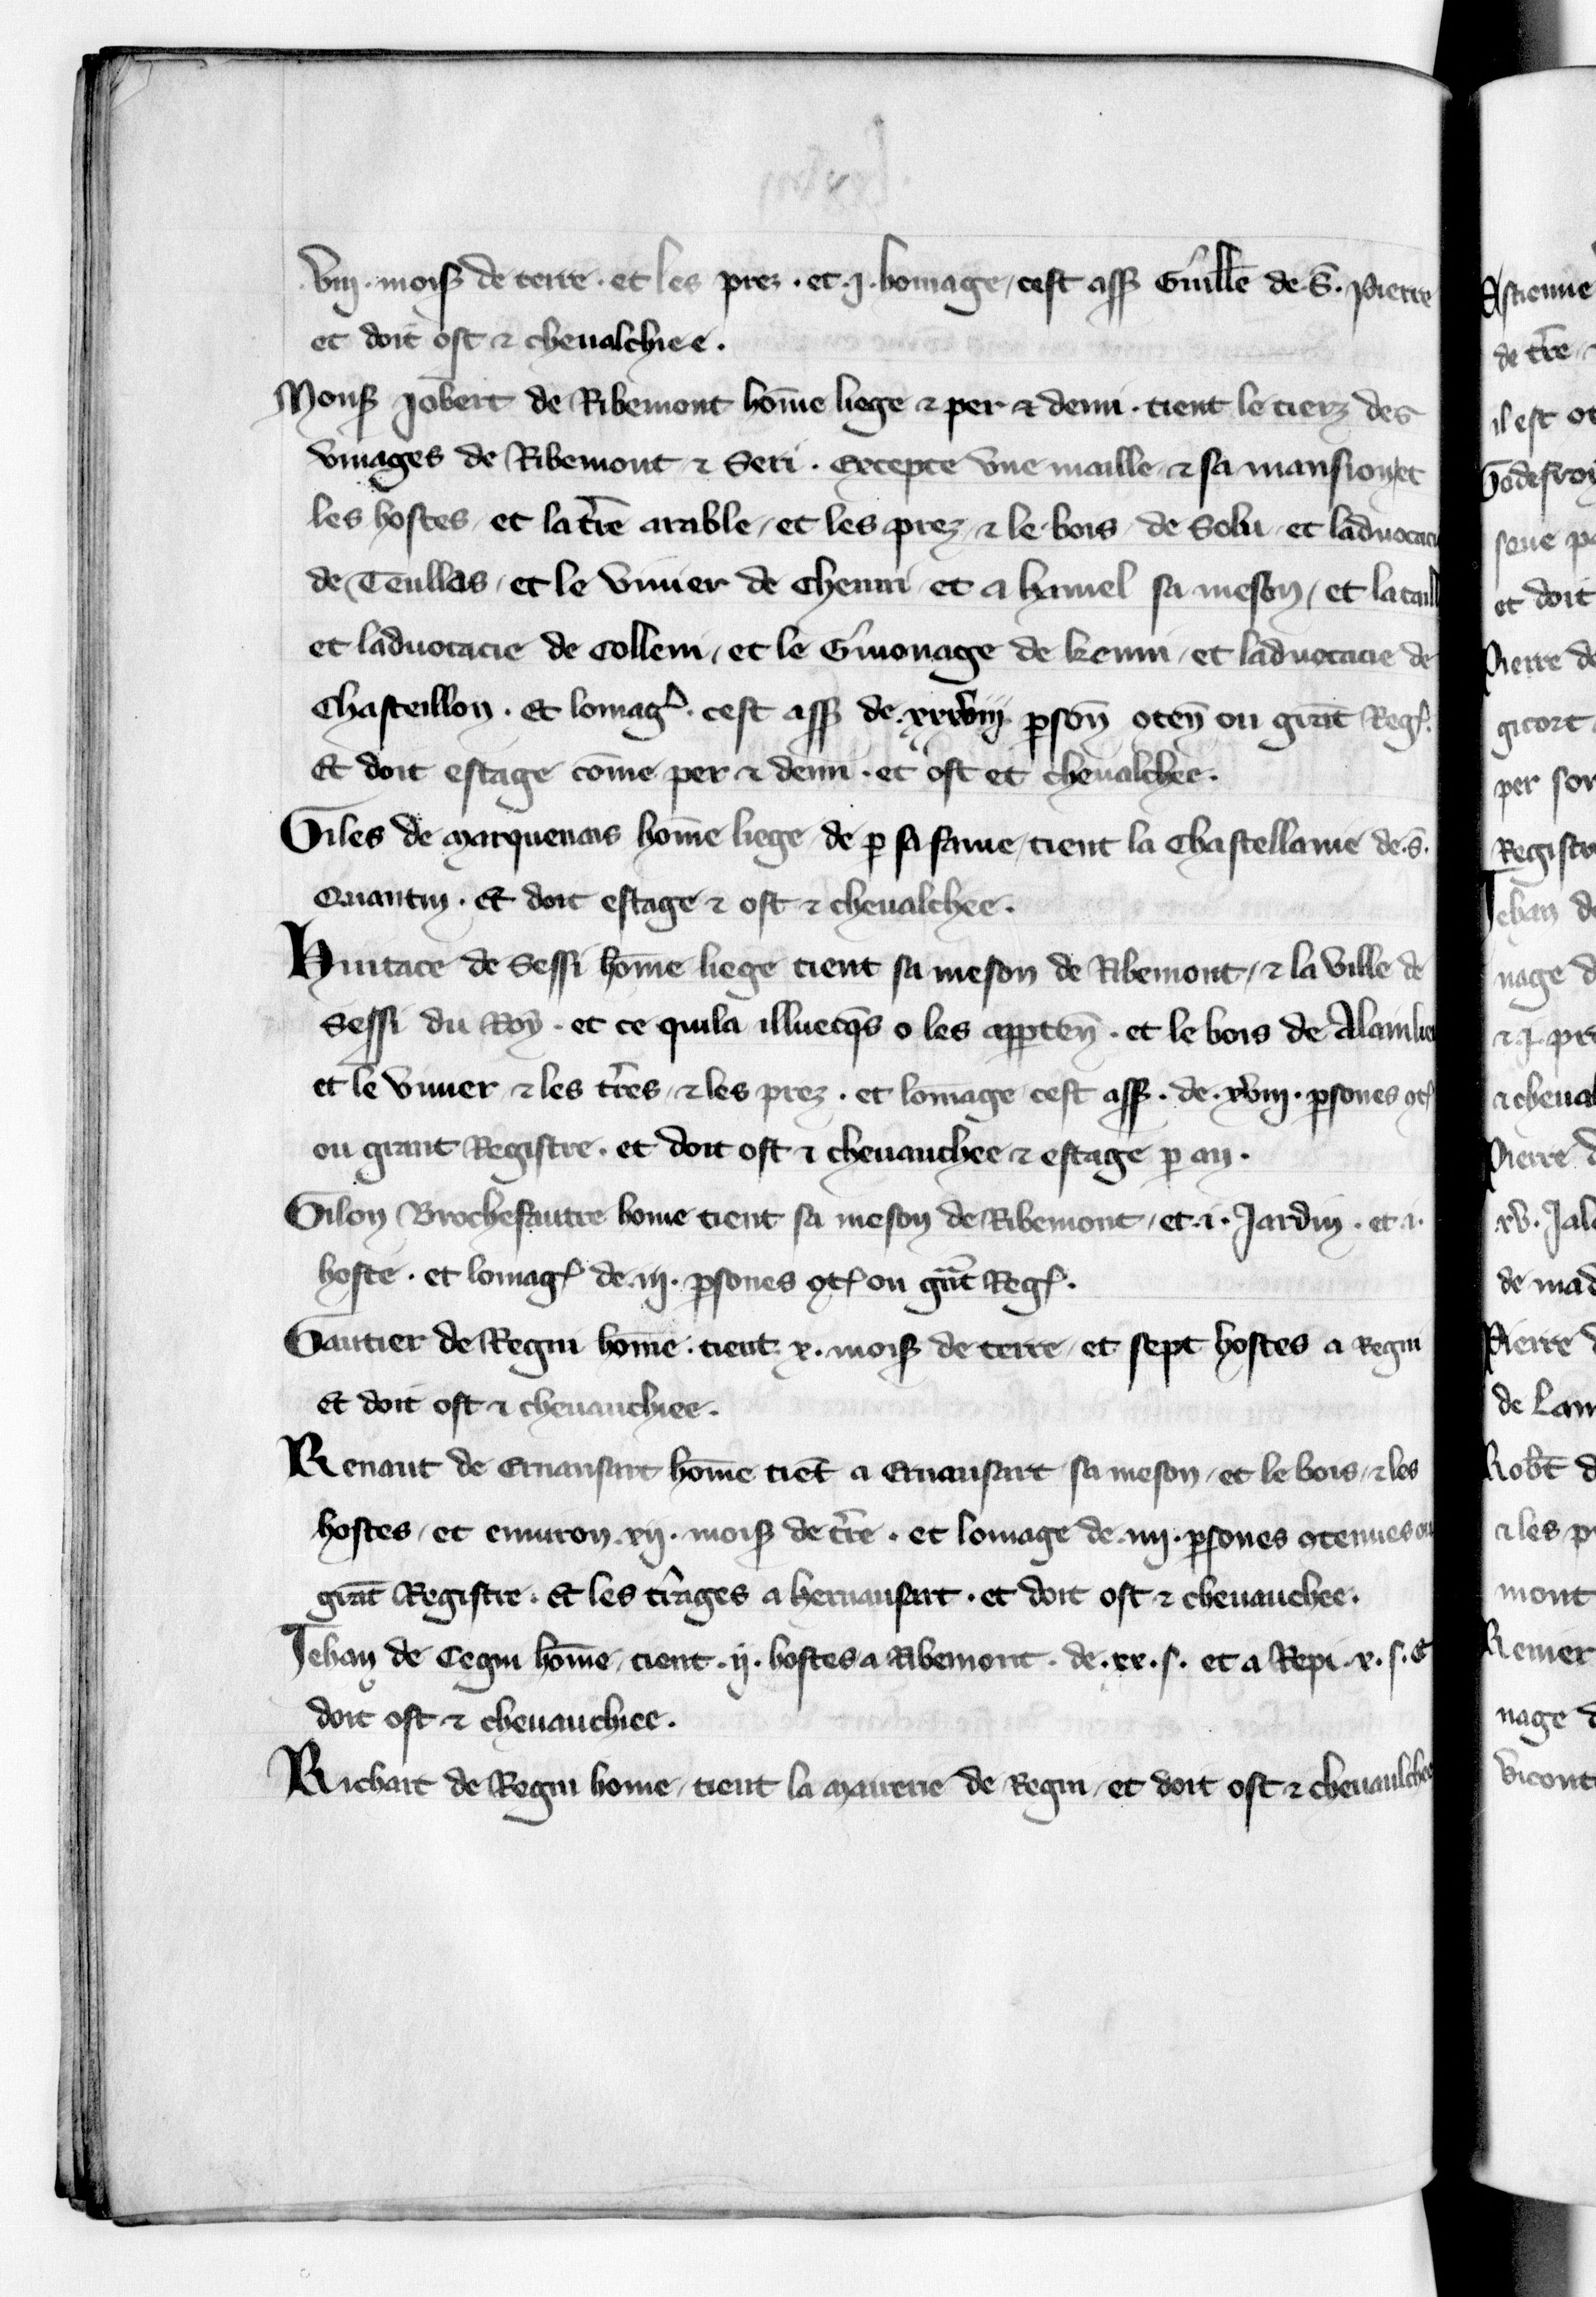 .viij. moiꝭ de terre . et les prez . et .j. homage / cest assꝭ Guill̄e de .S. Pierre
et doit ost ⁊ cheualchiee .
Monsꝭ Jobert de Ribemont hom̄e liege ⁊ per ⁊ demi . tient le tierz des
vinages de Ribemont ⁊ Seri . Excepte vne maille / ⁊ sa mansion / et
les hostes / et la tr̄e arable / et les prez / ⁊ le bois de Solu / et laduocacie
de Teullas / et le viuier de Chenni / et a hamel sa meson / et la taill
et laduocacie de Collem / et le Guionage de kenni / et laduocacie de
Chasteillon . Et lomagꝭ . cest assꝭ de .xxxviij. ꝑson̄ ꝯten̄ ou grāt Regꝭ.
Et doit estage com̄e per ⁊ demi . et ost et cheualchee .
Giles de Marquenais hom̄e liege / de ꝑ sa fame / tient la Chastellanie de .S.
Quantin . Et doit estage ⁊ ost ⁊ cheualchee .
Huitace de Sessi hom̄e liege tient sa meson de Ribemont / ⁊ la ville de
Sessi du Roy . et ce quila illuecq̄s o les apꝑten̄ . et le bois de
et le viuier ⁊ les tr̄es / ⁊ les prez . et lomage cest assꝭ . de .xviij. ꝑsones ꝯtꝭ
ou grant Registre . et doit ost ⁊ cheuauchee ⁊ estage ꝑ an .
Gilon Brochefautre home tient sa meson de Ribemont / et .i. Jardin . et .i.
hoste . et lomagꝭ de .iij. ꝑsones ꝯtꝭ ou grāt Regꝭ .
Gautier de Regni hom̄e . tient .x. moiꝭ de terre / et sept hostes a Regni
Et doit ost ⁊ cheuauchiee .
Renaut de Ernansart hom̄e tiēt a Ernausart sa meson / et le bois / ⁊ les
hostes / et enuiron .xij. moiꝭ de tr̄e . et lomage de .iiij. ꝑsones ꝯtenues ou
grāt Registre . Et les tr̄ages a hernansart . et doit ost ⁊ cheuauchee .
Jehan de Cegni hom̄e / tient .ij. hostes a Ribemont . de .xx. s. et a Repi .x. s. Et
doit ost ⁊ cheuauchiee .
Richart de Regni home / tient la mairerie de Regni / et doit ost ⁊ cheuaulchee
Astienne
de tr̄e
il est
Godefroy
et doit
Pierre de
gicort
per
Registre
Jehan de
nage
⁊ .j. pre
Pierre
.xv. Jal
de mad
Pierre
de Lan
Rob̄t
⁊ les
mont
Renier
nage
viconte